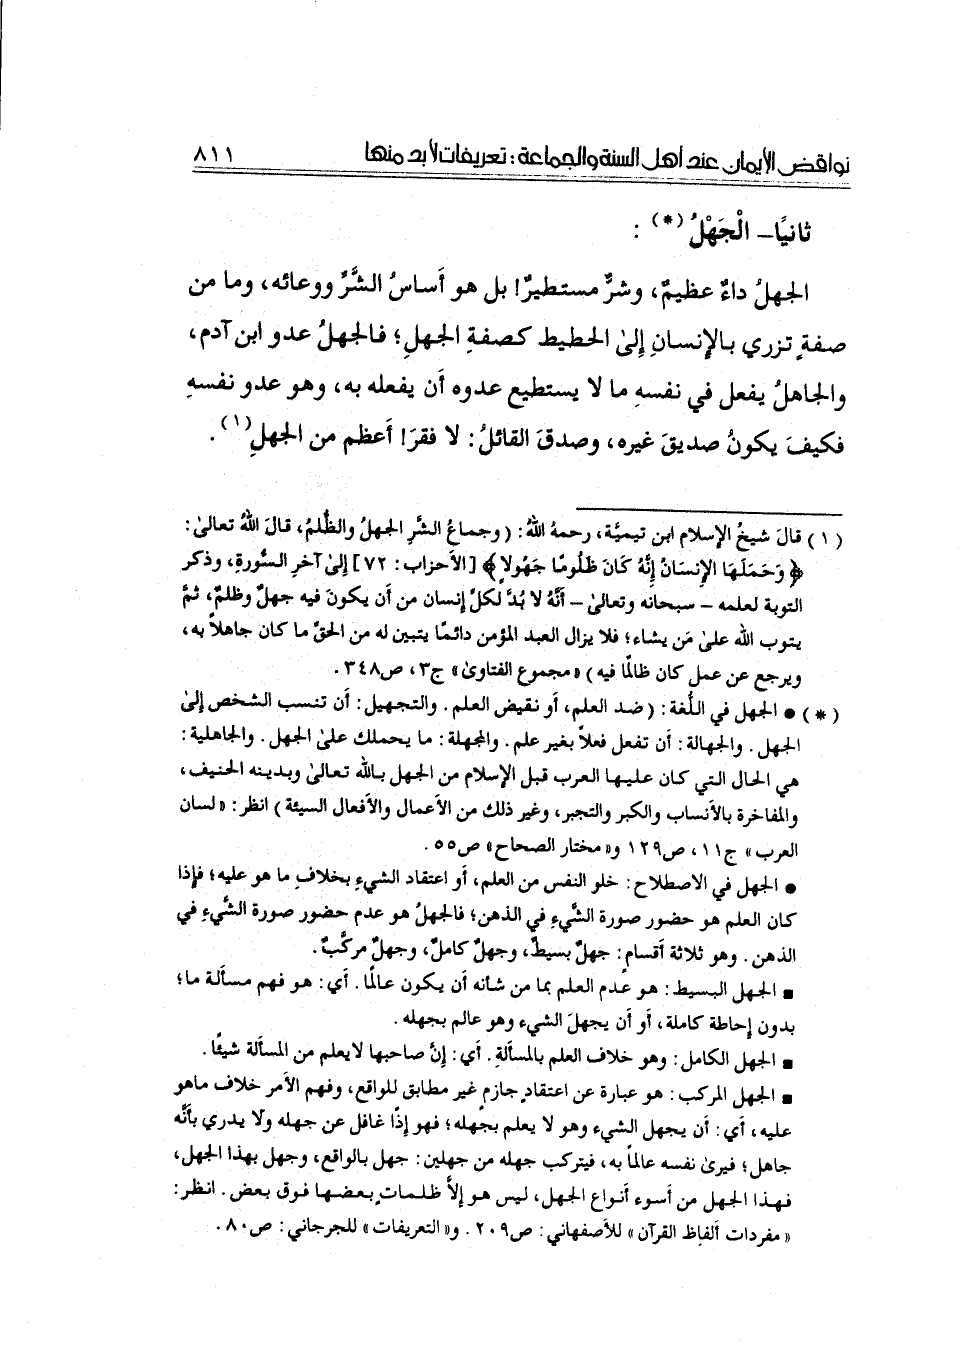 نواقض الإيمان عند أهل السنة والجماعة : تعريفات لأبد منها ٨١١
ثانيًا– الْجَهْلُ (*) :
الجهلُ داءٌ عظيمٌ، وشرٌّ مستطيرٌ! بل هو أساسُ الشَّرِّ ووعائه، وما من
صفةٍ تزري بالإنسانِ إلىٰ الحطيط كصفةِ الجهلِ؛ فالجهلُ عدو ابن آدم،
والجاهلُ يفعل في نفسهِ ما لا يستطيع عدوه أن يفعله به، وهو عدو نفسهِ
فكيفَ يكونُ صديقَ غيره، وصدقَ القائلُ : لا فقرَ! أعظم من الجهلِ (١) .
(١) قالَ شيخُ الإسلام ابن تيميَّة، رحمهُ اللهُ : (وجماعُ الشَّرِ الجهلُ والظُلمُ، قالَ اللهُ تعالىٰ :
﴿وَحَمَلَهَا الإِنسَانُ إِنَّهُ كَانَ ظَلُومًا جَهُولاً﴾ [الأحزاب : ٧٢] إلىٰ آخرِ السُّورةِ، وذكر
التوبة لعلمه – سبحانه وتعالىٰ – أنَّهُ لا بُدَّ لكلِّ إنسان من أن يكونَ فيه جهلٌ وظلمٌ، ثمَّ
يتوب الله علىٰ مَن يشاء؛ فلا يزال العبد المؤمن دائمًا يتبين له من الحقِّ ما كان جاهلاً به،
ويرجع عن عمل كان ظالمًا فيه) «مجموع الفتاوىٰ» ج٣، ص٣٤٨ .
(*) ● الجهل في اللُّغة : (ضد العلم، أو نقيض العلم . والتجهيل : أن تنسب الشخص إلىٰ
الجهل . والجهالة : أن تفعل فعلاً بغير علم . والمجهلة : ما يحملك علىٰ الجهل . والجاهلية :
هي الحال التي كان عليها العرب قبل الإسلام من الجهل بالله تعالىٰ وبدينه الحنيف،
والمفاخرة بالأنساب والكبر والتجبر، وغير ذلك من الأعمال والأفعال السيئة) انظر : «لسان
العرب» ج١١، ص١٢٩ و«مختار الصحاح» ص٥٥ .
● الجهل في الاصطلاح : خلو النفس من العلم، أو اعتقاد الشيءِ بخلافِ ما هو عليه؛ فإذا
كان العلم هو حضور صورة الشَّيءِ في الذهن؛ فالجهلُ هو عدم حضور صورة الشَّيءِ في
الذهن . وهو ثلاثة أقسامٍ : جهلٌ بسيطٌ، وجهلٌ كاملٌ، وجهلٌ مركَّبٌ .
■ الجهل البسيط : هو عدم العلم بما من شأنه أن يكون عالمًا . أي : هو فهم مسألة ما؛
بدون إحاطة كاملة، أو أن يجهلَ الشيء وهو عالم بجهله .
■ الجهل الكامل : وهو خلاف العلم بالمسألةِ . أي : إنَّ صاحبها لايعلم من المسألة شيئًا .
■ الجهل المركب : هو عبارة عن اعتقادٍ جازمٍ غير مطابق للواقع، وفهم الأمر خلاف ماهو
عليه، أي : أن يجهل الشيء وهو لا يعلم بجهله؛ فهو إذًا غافل عن جهله ولا يدري بأنَّه
جاهل؛ فيرىٰ نفسه عالمًا به، فيتركب جهله من جهلين : جهل بالواقع، وجهل بهذا الجهل،
فهذا الجهل من أسوء أنواع الجهل، ليس هو إلاَّ ظلماتٍ بعضها فوق بعض . انظر :
«مفردات ألفاظ القرآن» للأصفهاني : ص٢٠٩ . و«التعريفات» للجرجاني : ص٨٠ .